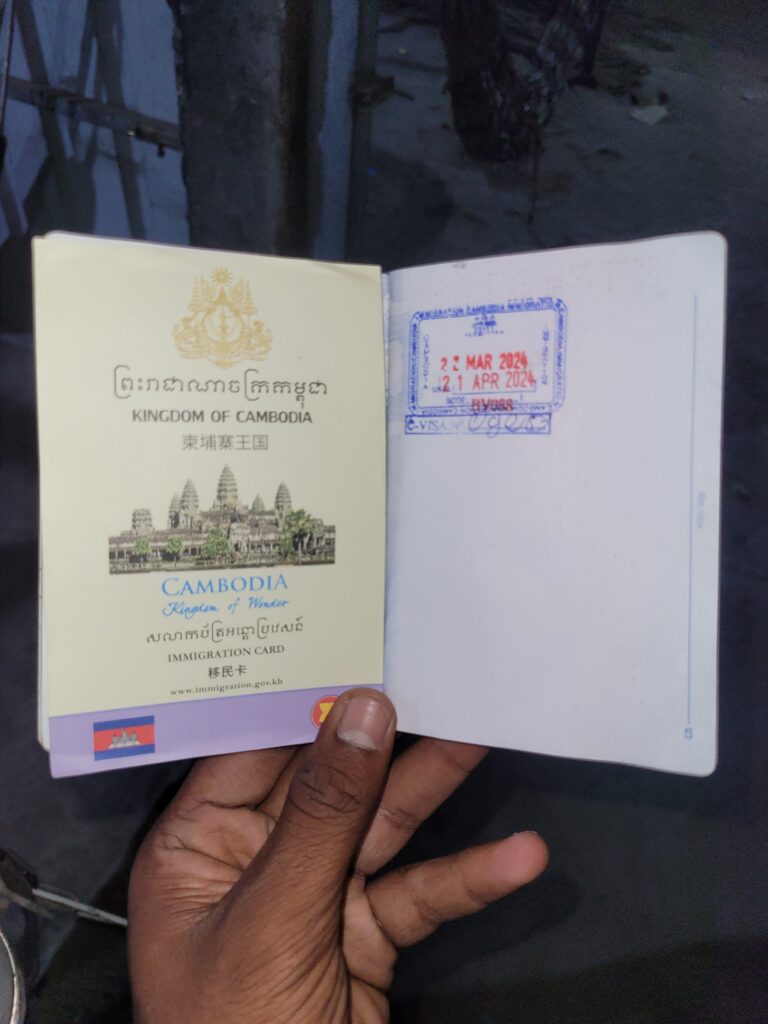 ព្រះរាជាណាចក្រកម្ពុជា
KINGDOM OF CAMBODIA
柬埔寨王国
CAMBODIA
Kingdom of Wonder
សលាកប័ត្រអន្តោប្រវេសន៍
IMMIGRATION CARD
移民卡
www.immigration.gov.kh
CAMBODIA IMMIGRATIO
22 MAR 2024
21 APR 2024
E-VISA Nº